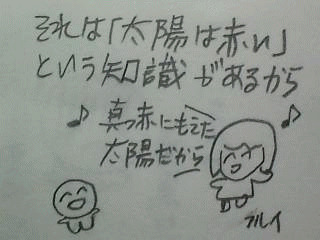 それは「太陽は赤い」
という知識があるから
♪真っ赤にもえた♪
太陽だから
フルイ